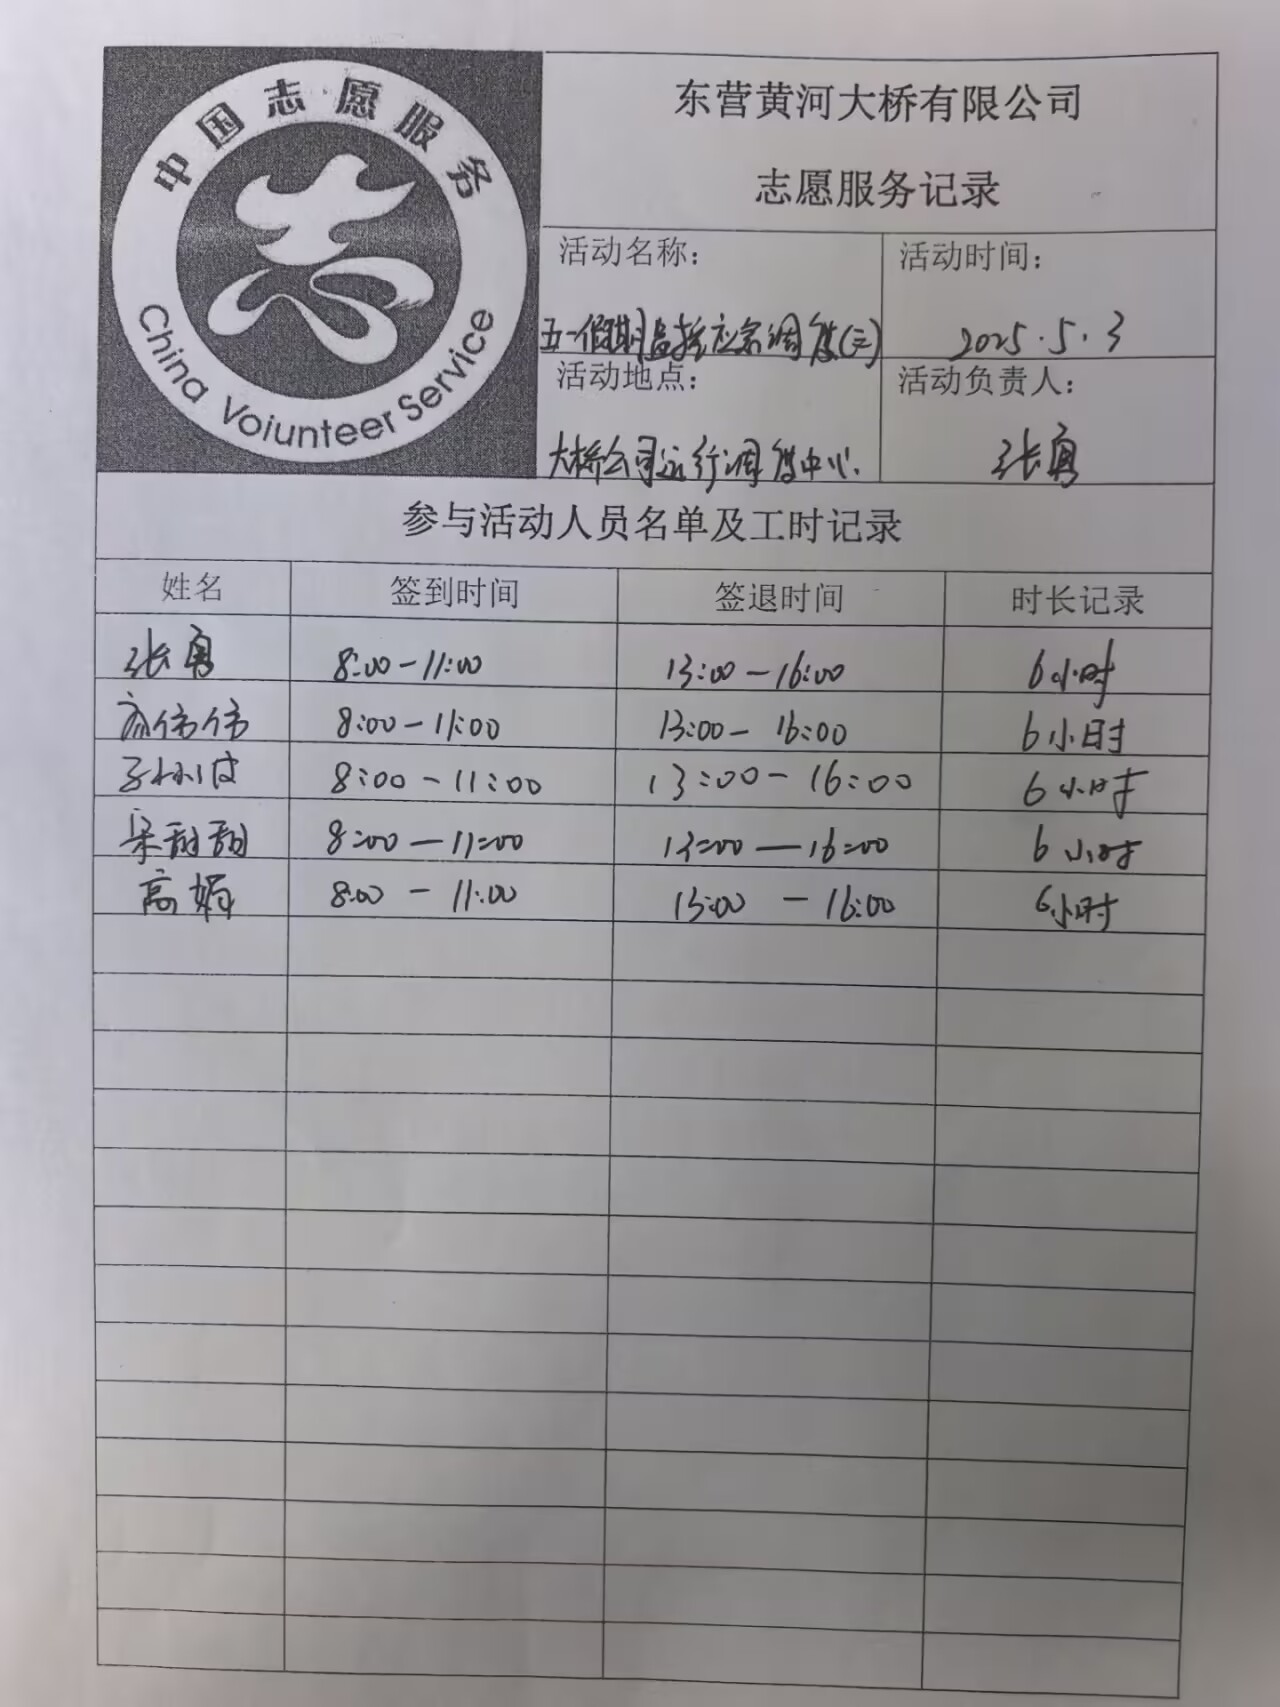 中国志愿服务
China Voiunteer Service
东营黄河大桥有限公司
志愿服务记录
活动名称：
五一假期监控应急调度(三)
活动时间：
2025.5.3
活动地点：
大桥公司运行调度中心
活动负责人：
张勇
参与活动人员名单及工时记录
姓名 签到时间 签退时间 时长记录
张勇 8:00-11:00 13:00-16:00 6小时
伟伟 8:00-11:00 13:00-16:00 6小时
8:00-11:00 13:00-16:00 6小时
宋甜甜 8:00-11:00 13:00-16:00 6小时
高娟 8:00-11:00 13:00-16:00 6小时